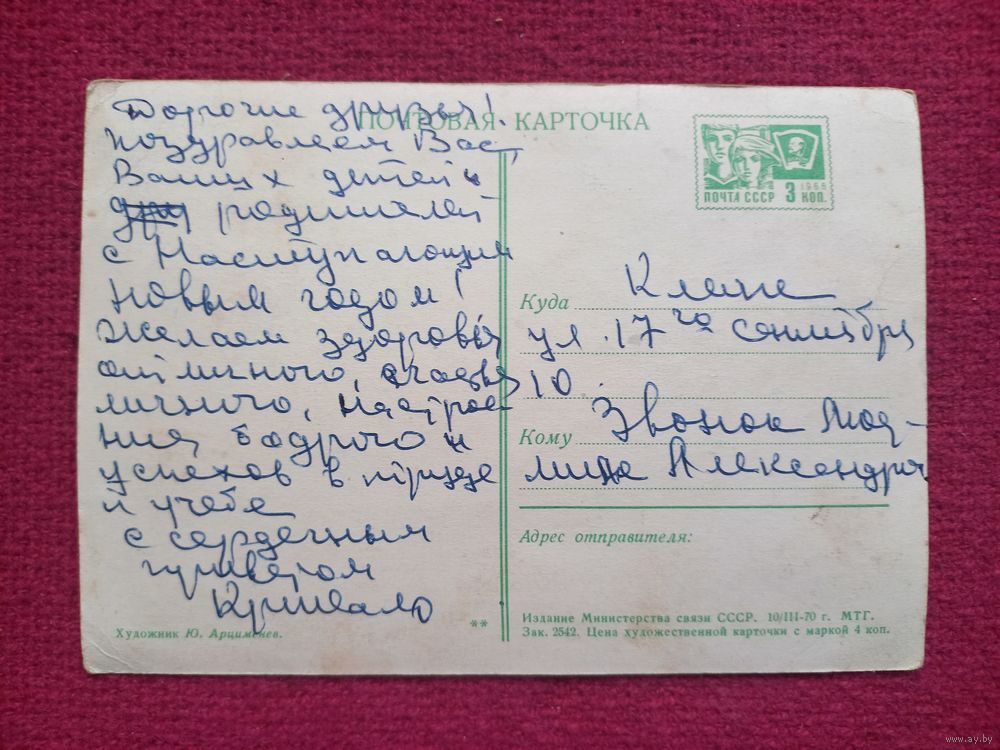 Дорогие друзья!
поздравляем Вас,
Ваших детей и
родителей
с Наступающим
Новым годом!
Желаем здоровья
отличного, счастья
личного, настрое-
ния бодрого и
успехов в труде
и учебе
с сердечным
приветом
Художник Ю. Арцименев.
ПОЧТОВАЯ КАРТОЧКА
1966
ПОЧТА СССР 3 КОП.
Куда
ул. 17го сентября
10
Кому Звонок Люд-
миле Александр
Адрес отправителя:
**
Издание Министерства связи СССР. 10/III-70 г. МТГ.
Зак. 2542. Цена художественной карточки с маркой 4 коп.
www.ay.by